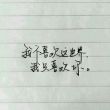 我不喜欢这世界，
我只喜欢你。